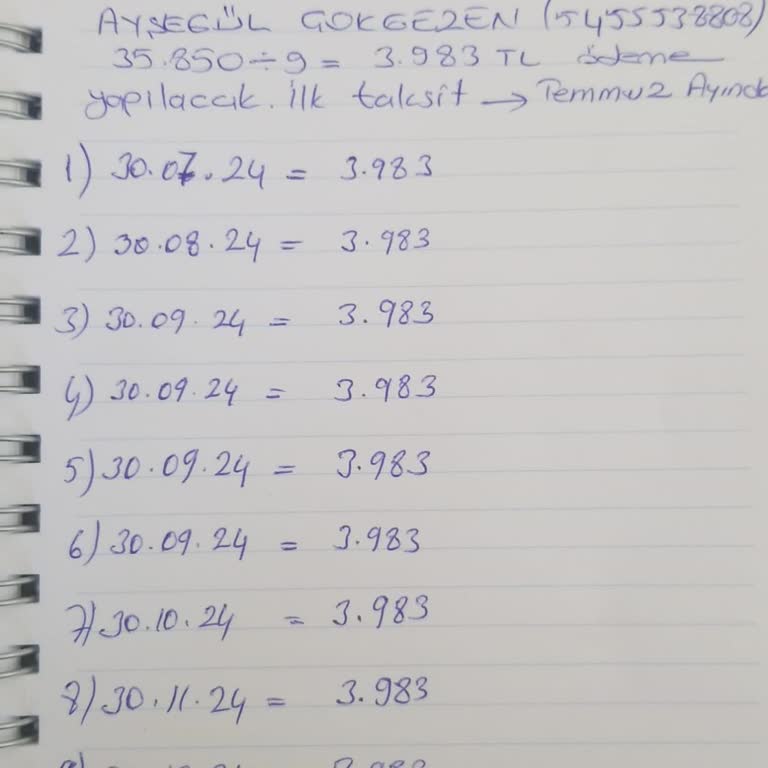 AYŞEGÜL GÖKGEZEN (5455538808)
35.850÷9 = 3.983 TL ödeme
yapılacak. İlk taksit → Temmuz Ayında
1) 30.07.24 = 3.983
2) 30.08.24 = 3.983
3) 30.09.24 = 3.983
4) 30.09.24 = 3.983
5) 30.09.24 = 3.983
6) 30.09.24 = 3.983
7) 30.10.24 = 3.983
8) 30.11.24 = 3.983